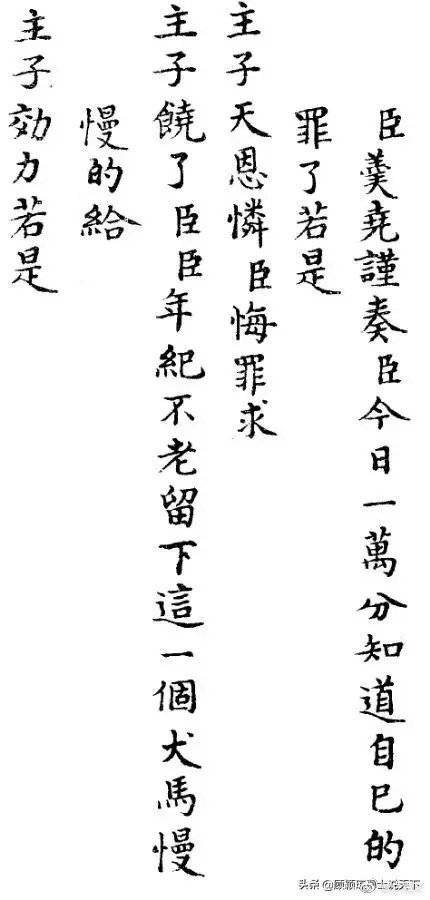 臣羹堯謹奏臣今日一萬分知道自己的
罪了若是
主子天恩憐臣悔罪求
主子饒了臣臣年紀不老留下這一個犬馬慢
慢的給
主子効力若是
头条 @顾颖琼博士说天下